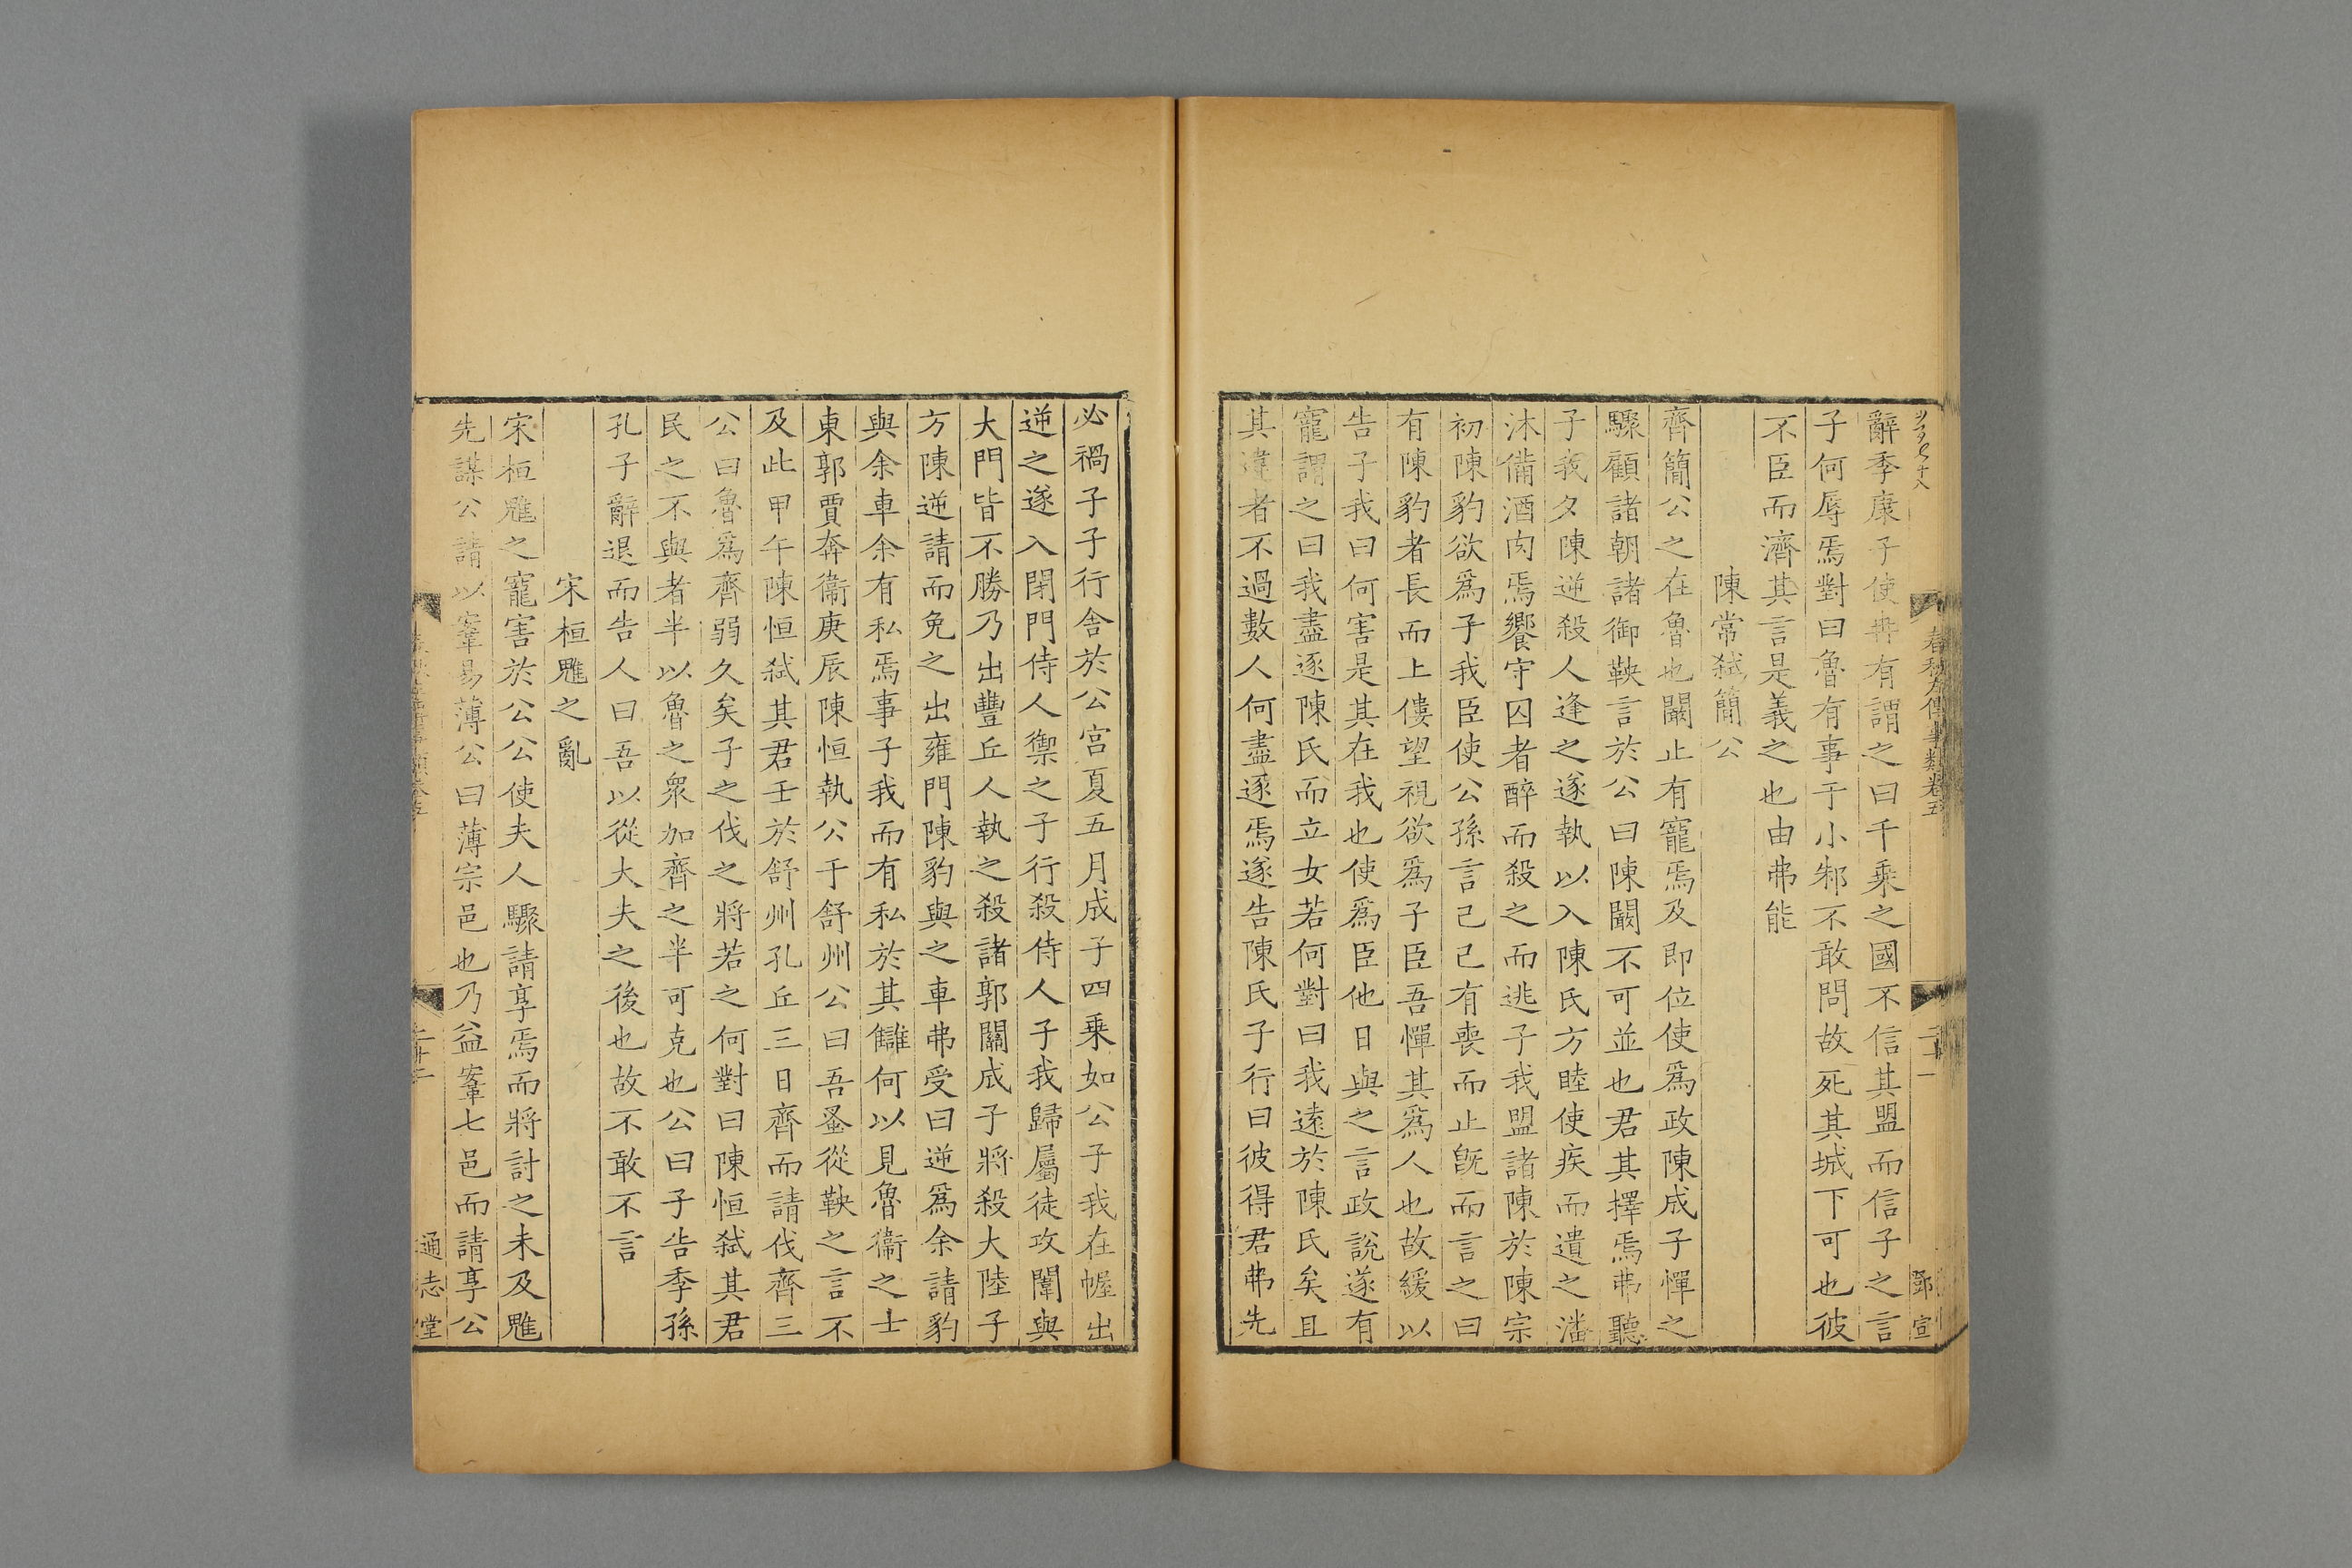 春秋左傳事類卷五
二十一
鄧宣
辭季康子使冉有謂之曰千乘之國不信其盟而信子之言
子何辱焉對曰魯有事于小邾不敢問故死其城下可也彼
不臣而濟其言是義之也由弗能
陳常弒簡公
齊簡公之在魯也闞止有寵焉及即位使爲政陳成子憚之
驟顧諸朝諸御鞅言於公曰陳闞不可並也君其擇焉弗聽
子我夕陳逆殺人逢之遂執以入陳氏方睦使疾而遺之潘
沐備酒肉焉饗守囚者醉而殺之而逃子我盟諸陳於陳宗
初陳豹欲爲子我臣使公孫言己已有喪而止旣而言之曰
有陳豹者長而上僂望視欲爲子臣吾憚其爲人也故緩以
告子我曰何害是其在我也使爲臣他日與之言政說遂有
寵謂之曰我盡逐陳氏而立女若何對曰我遠於陳氏矣且
其違者不過數人何盡逐焉遂告陳氏子行曰彼得君弗先
必禍子子行舍於公宮夏五月成子四乘如公子我在幄出
逆之遂入閉門侍人禦之子行殺侍人子我歸屬徒攻闈與
大門皆不勝乃出豐丘人執之殺諸郭關成子將殺大陸子
方陳逆請而免之出雍門陳豹與之車弗受曰逆爲余請豹
與余車余有私焉事子我而有私於其讎何以見魯衞之士
東郭賈奔衞庚辰陳恒執公于舒州公曰吾蚤從鞅之言不
及此甲午陳恒弒其君壬於舒州孔丘三日齊而請伐齊三
公曰魯爲齊弱久矣子之伐之將若之何對曰陳恒弒其君
民之不與者半以魯之眾加齊之半可克也公曰子告季孫
孔子辭退而告人曰吾以從大夫之後也故不敢不言
宋桓魋之亂
宋桓魋之寵害於公公使夫人驟請享焉而將討之未及魋
先謀公請以鞌易薄公曰薄宗邑也乃益鞌七邑而請享公
通志堂